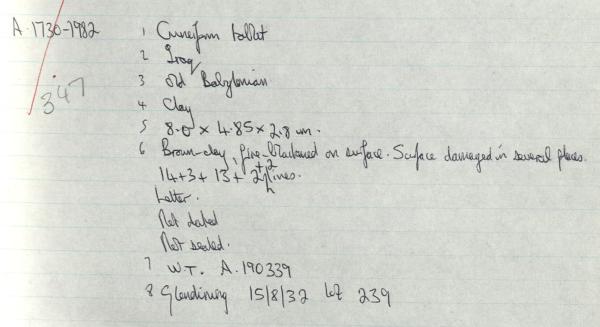 A.1730-1982 1 Cuneiform tablet
2 Iraq
347
3 Old Babylonian
4 Clay
5 8.0 x 4.85 x 2.8 cm.
6 Brown clay, fire-blackened on surface. Surface damaged in several places.
14+3+13+2+2 lines.
Letter.
Not dated
Not sealed.
7 W.T. A.190339
8 Glendining 15/8/32 lot 239